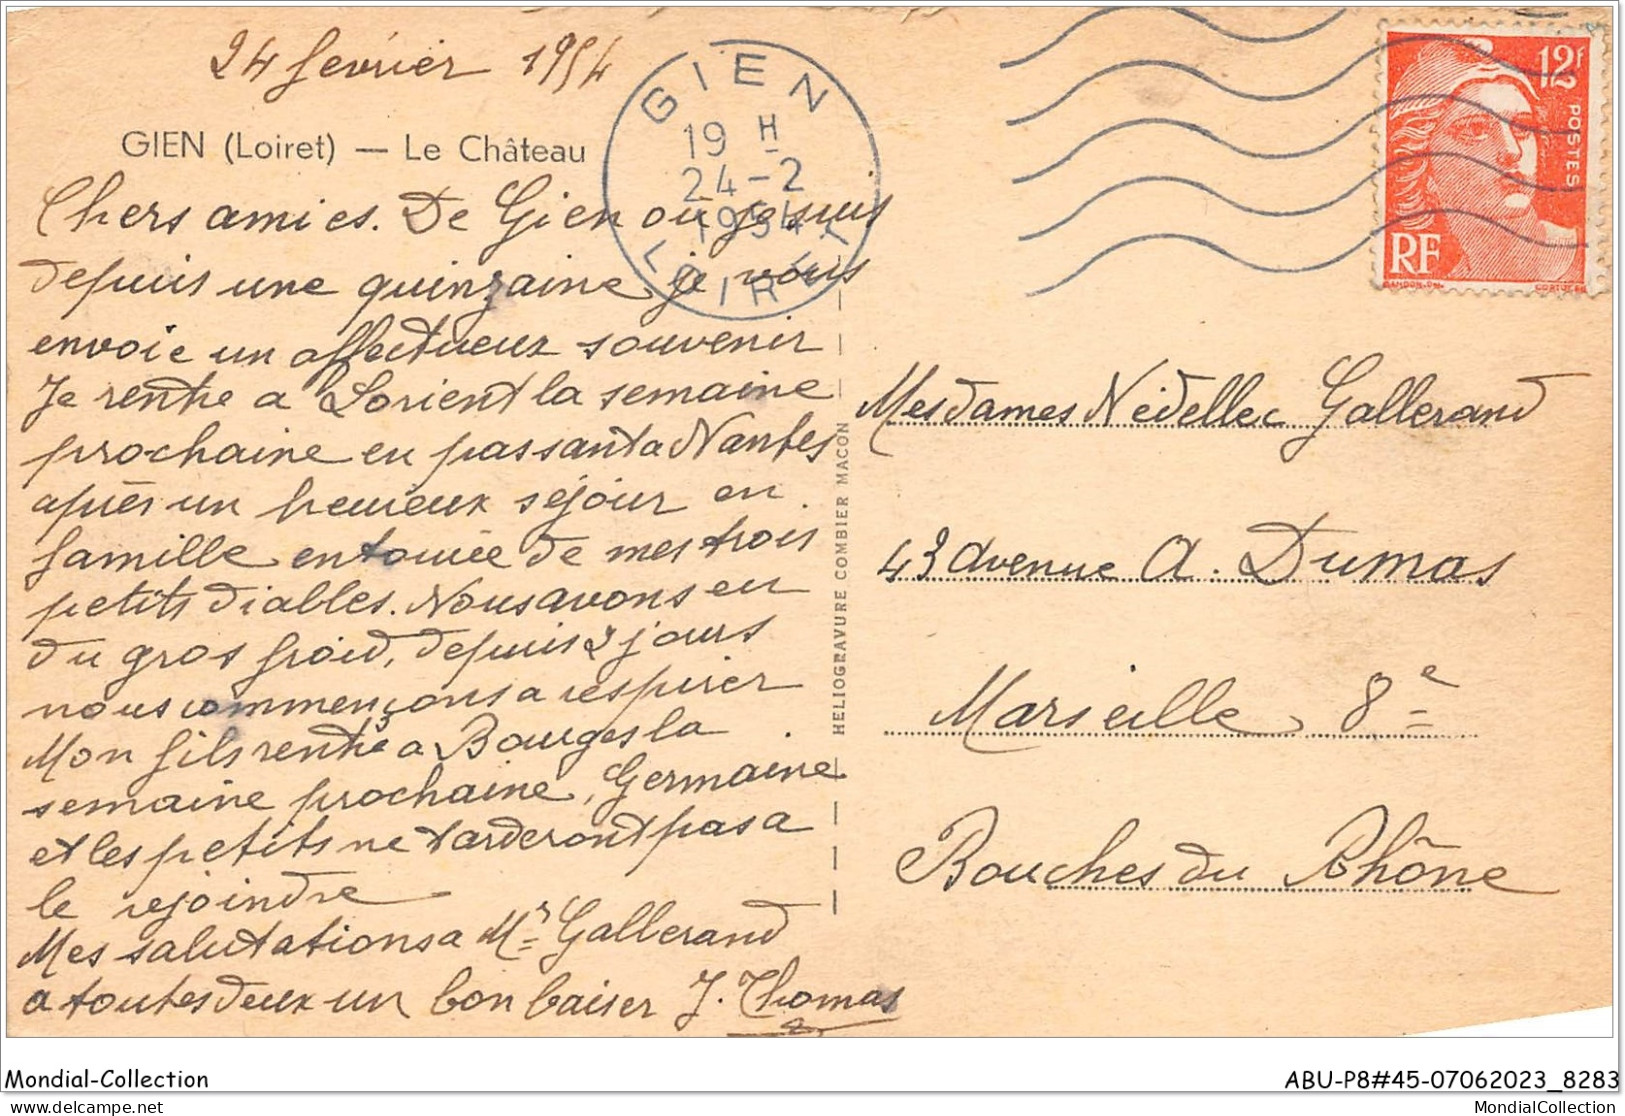 24 fevrier 1954
GIEN (Loiret) — Le Château
GIEN
19 H
24-2
1954
LOIRET
12f
POSTES
RF
GANDON.DEL.
CORTOT.SC.
Chers amies. De Gien ou je suis
depuis une quinzaine je vous
envoie un affectueux souvenir
Je rentre a Lorient la semaine
prochaine en passant a Nantes
après un heureux séjour en
famille entourée de mes trois
petits diables. Nous avons eu
du gros froid, depuis 2 jours
nous commençons a respirer
Mon fils rentre a Bourges la
semaine prochaine, Germaine
et les petits ne tarderont pas a
le rejoindre
Mes salutations a Mr Gallerand
a toutes deux un bon baiser J. Thomas
HELIOGRAVURE COMBIER MACON
Mesdames Nédellec Gallerand
43 avenue A. Dumas
Marseille 8e
Bouches du Rhône
Mondial-Collection
ABU-P8#45-07062023_8283
text
MondialCollection